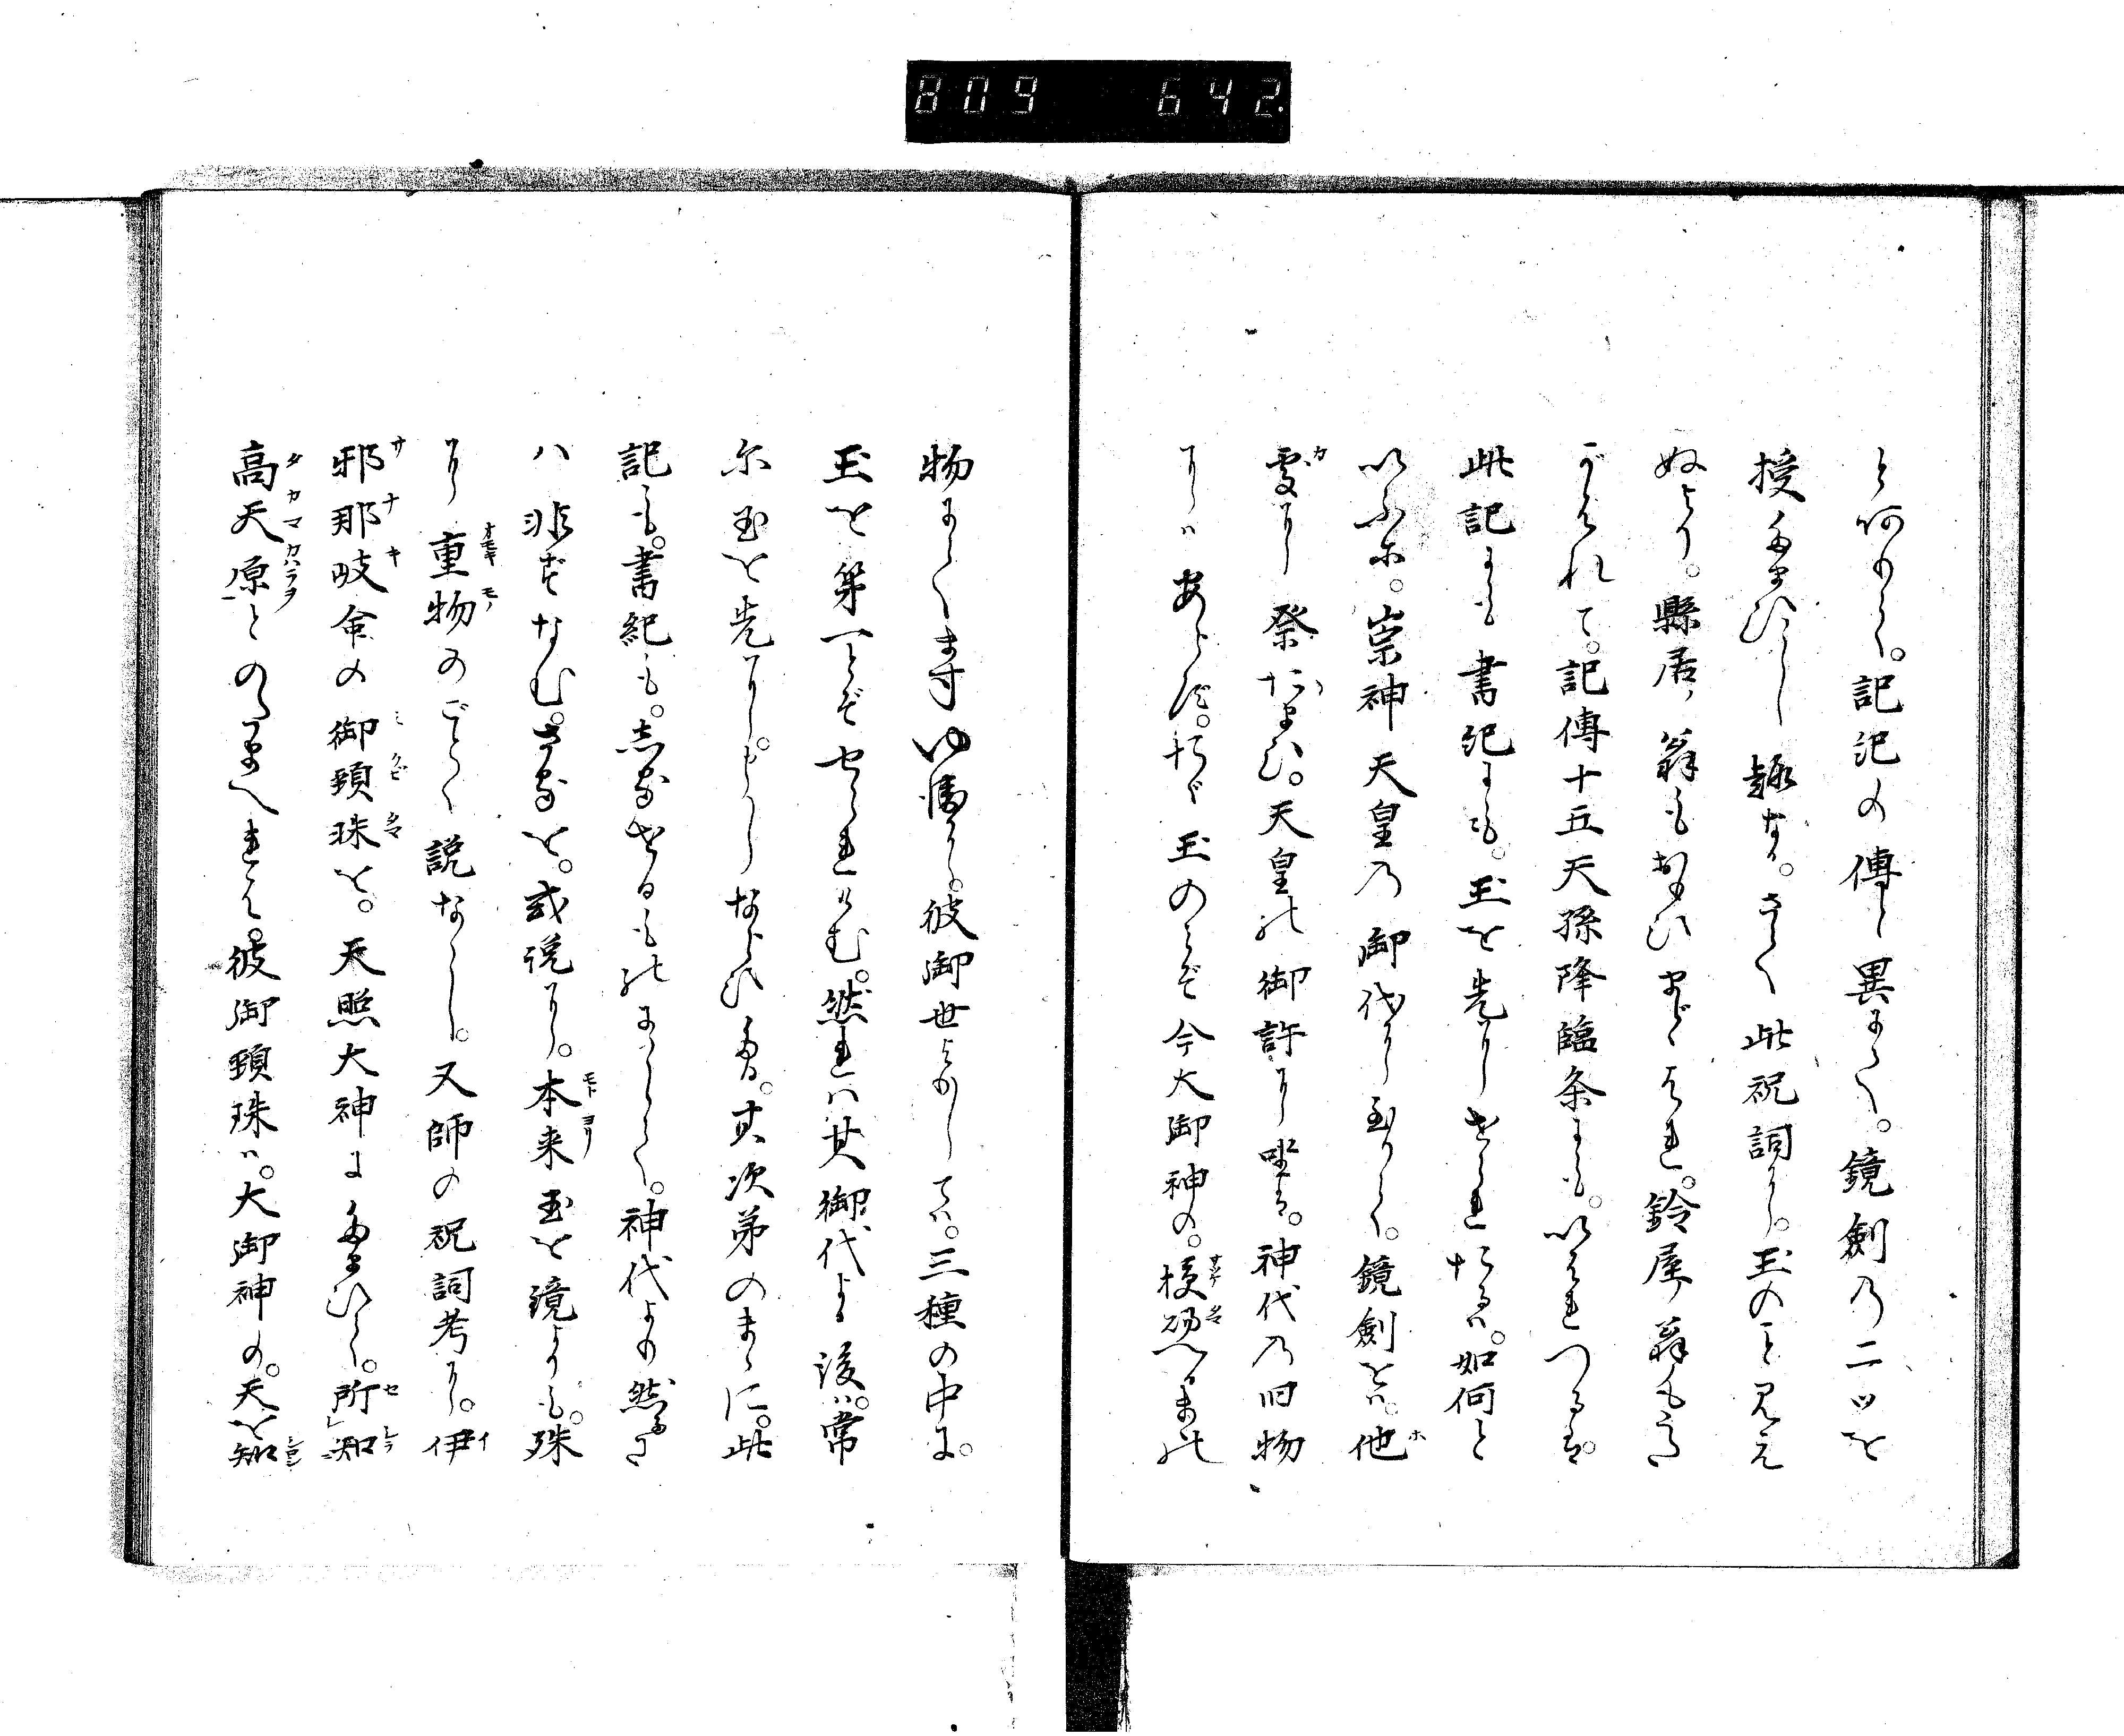 809 642
とあのりて。記紀の傳と異にして。鏡劍乃二ツを
授たまひし趣なり。さて此祝詞に。玉のこと見え
ぬより。縣居ノ翁もおもひまどはれ。鈴屋ノ翁もうた
がはれて。記傳十五天孫降臨条にも。いはれつるは。
此記にも書紀にも。玉を先にせられたるハ。如何と
いふに。崇神天皇乃御代に至りて。鏡劍をハ。他
處に祭たまひ。天皇の御許に坐は。神代乃旧物
にハあらず。たゞ玉のみぞ今大御神の。授賜へりまの
物にて ます ゆゑに。彼御世よりしてハ。三種の中に。
玉を第一とぞせられけむ。然れハ其御代より後ハ。常
尓玉を先にもうしならひたり。其次第のまゝに。此
記も。書紀も。志るせるものにこそして。神代よりの然るさ
ハ非ずなむ。さるを。或説に。本来玉を鏡よりも。殊
に重物のごとく説なし。又師の祝詞考に。伊
邪那岐命の御頸珠を。天照大神にたまひて。所知
高天原とのりたまへれば。彼御頸珠ハ。大御神の。天を知